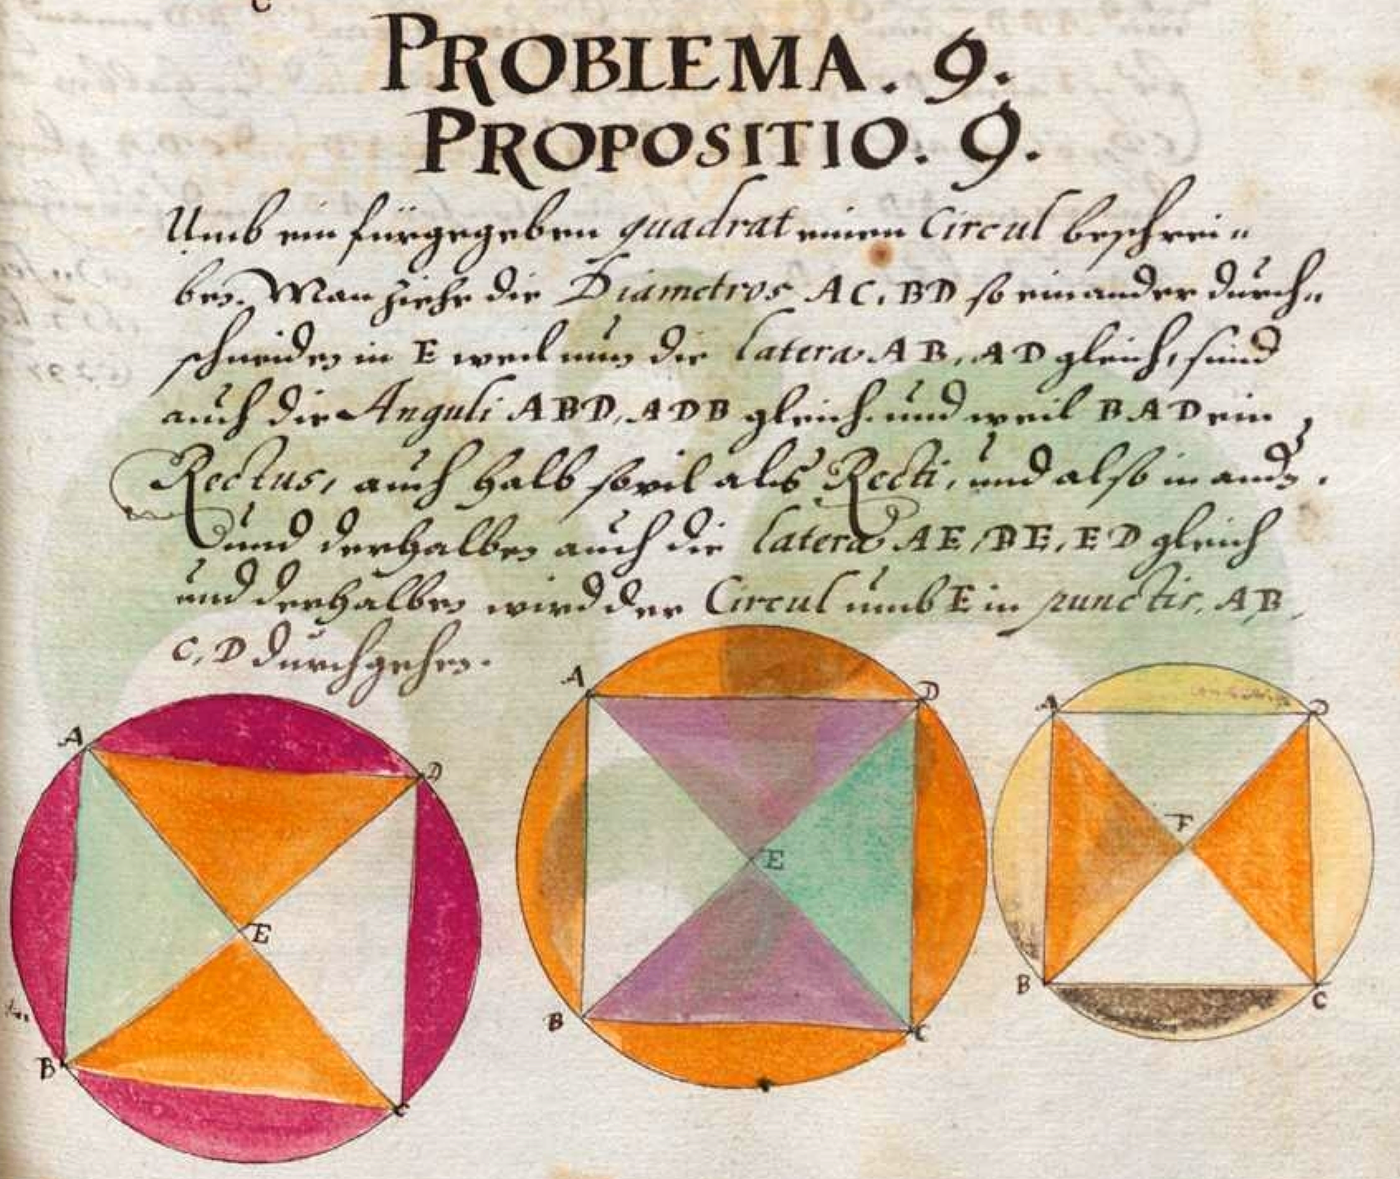 C
PROBLEMA. 9.
PROPOSITIO. 9.
Umb ein fürgegeben quadrat einen Circul beschrei„
ben. Man ziehe die Diametros AC, BD so einander durch„
schneiden in E weil nun die latera AB, AD gleich, sind
auch die Anguli ABD, ADB gleich und weil BAD ein
Rectus, auch halb sovil als Recti, und also in andn.
und derhalben auch die latera AE, BE, ED gleich
und derhalben wird der Circul umb E in punctis, AB,
C, D durchgehen.
A D E B C
A D E B C
A D F B C